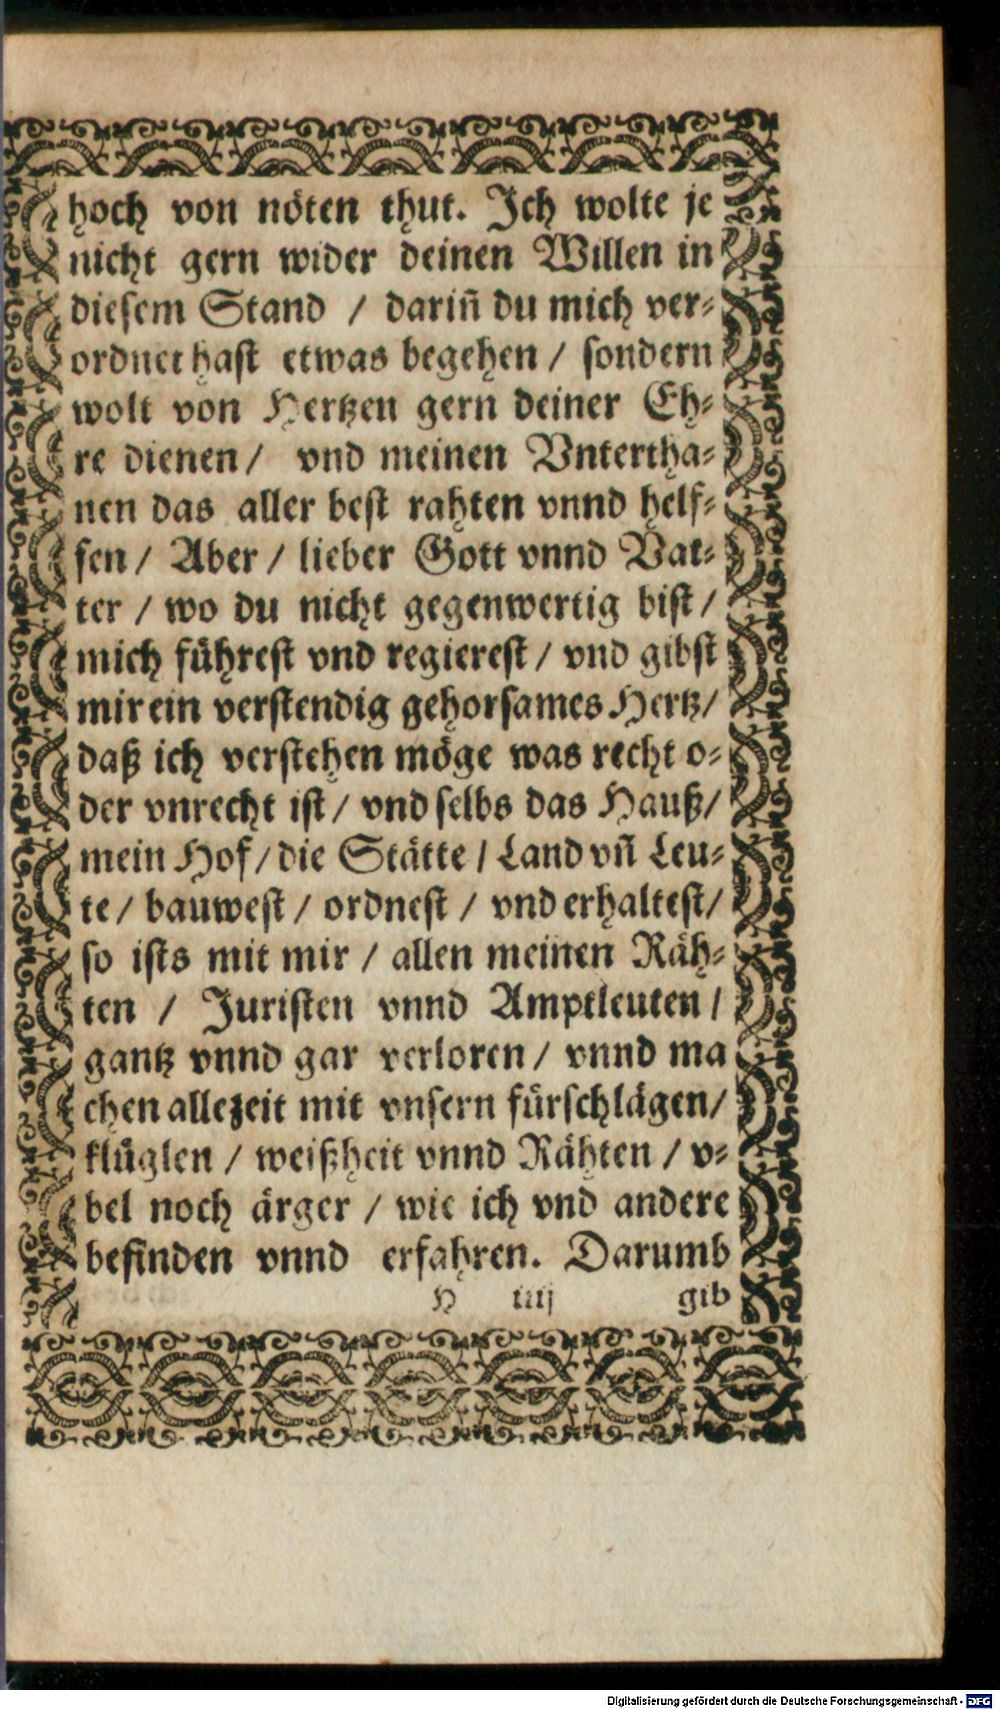 hoch von nöten thut. Ich wolte je
nicht gern wider deinen Willen in
diesem Stand / dariñ du mich ver⸗
ordnet hast etwas begehen / sondern
wolt von Hertzen gern deiner Eh⸗
re dienen / vnd meinen Vntertha⸗
nen das aller best rahten vnnd helf⸗
fen / Aber / lieber Gott vnnd Vat⸗
ter / wo du nicht gegenwertig bist /
mich führest vnd regierest / vnd gibst
mir ein verstendig gehorsames Hertz /
daß ich verstehen möge was recht o⸗
der vnrecht ist / vnd selbs das Hauß /
mein Hof / die Stätte / Land vñ Leu⸗
te / bauwest / ordnest / vnd erhaltest /
so ists mit mir / allen meinen Räh⸗
ten / Juristen vnnd Amptleuten /
gantz vnnd gar verloren / vnnd ma
chen allezeit mit vnsern fürschlägen /
klüglen / weißheit vnnd Rähten / v⸗
bel noch ärger / wie ich vnd andere
befinden vnnd erfahren. Darumb
H iiij gib
Digitalisierung gefördert durch die Deutsche Forschungsgemeinschaft - DFG